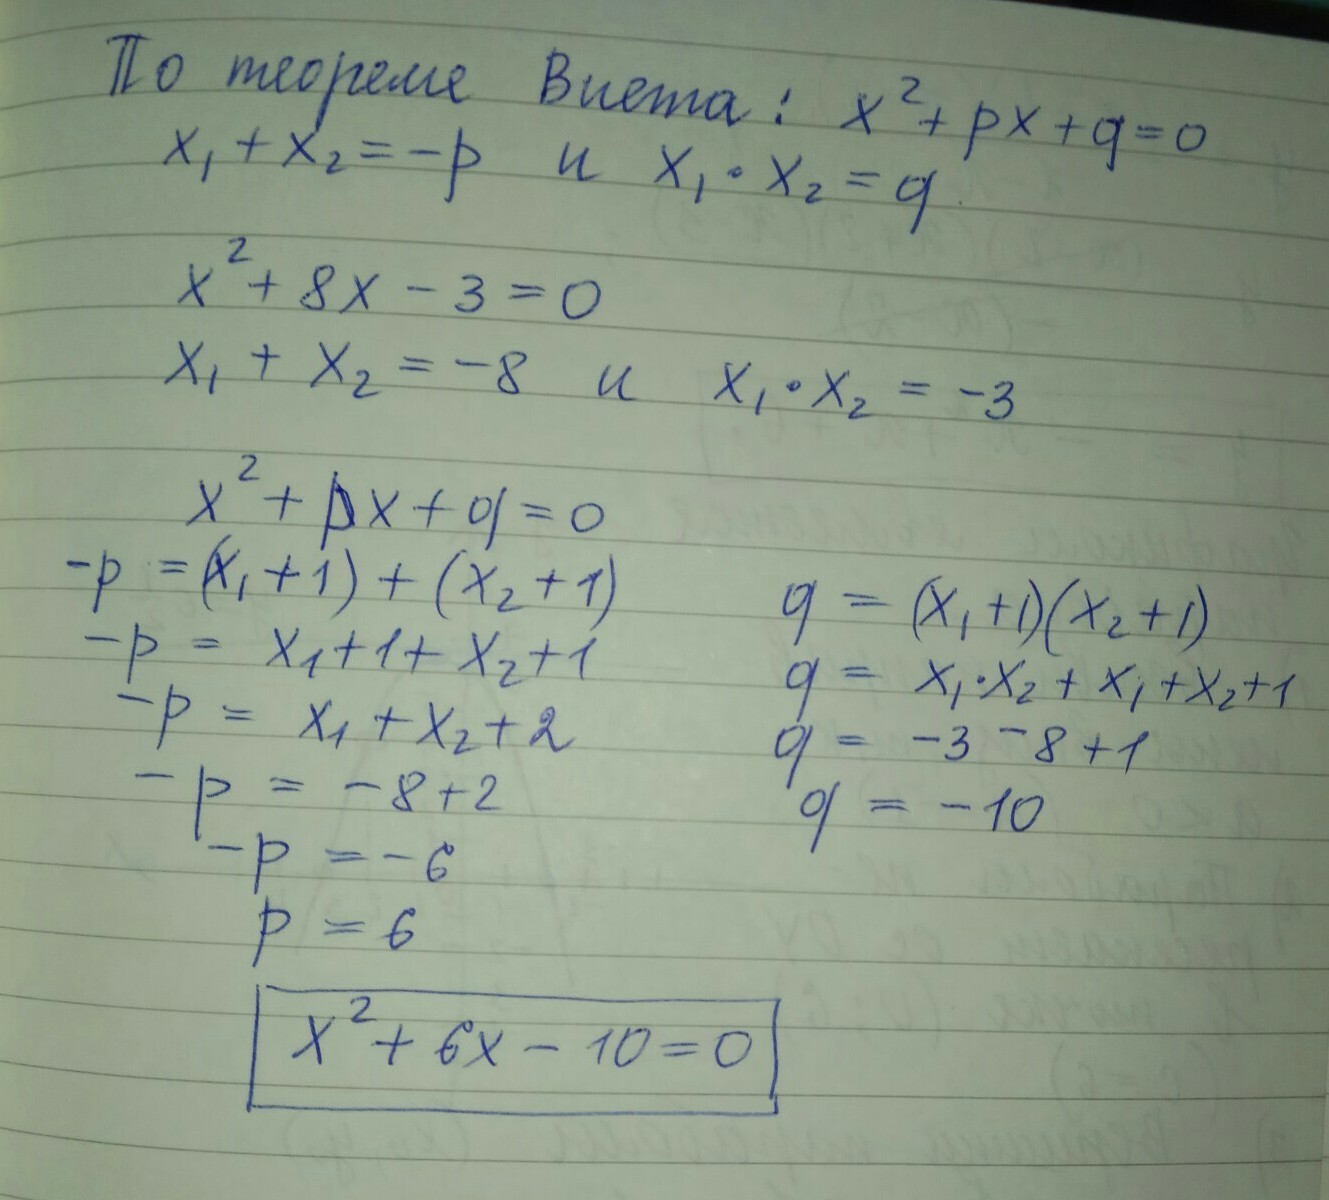 По теореме Виета: x² + px + q = 0
x₁ + x₂ = -p и x₁ · x₂ = q.
x² + 8x - 3 = 0
x₁ + x₂ = -8 и x₁ · x₂ = -3
x² + px + q = 0
-p = (x₁ + 1) + (x₂ + 1)
-p = x₁ + 1 + x₂ + 1
-p = x₁ + x₂ + 2
-p = -8 + 2
-p = -6
p = 6
q = (x₁ + 1)(x₂ + 1)
q = x₁·x₂ + x₁ + x₂ + 1
q = -3 - 8 + 1
q = -10
x² + 6x - 10 = 0